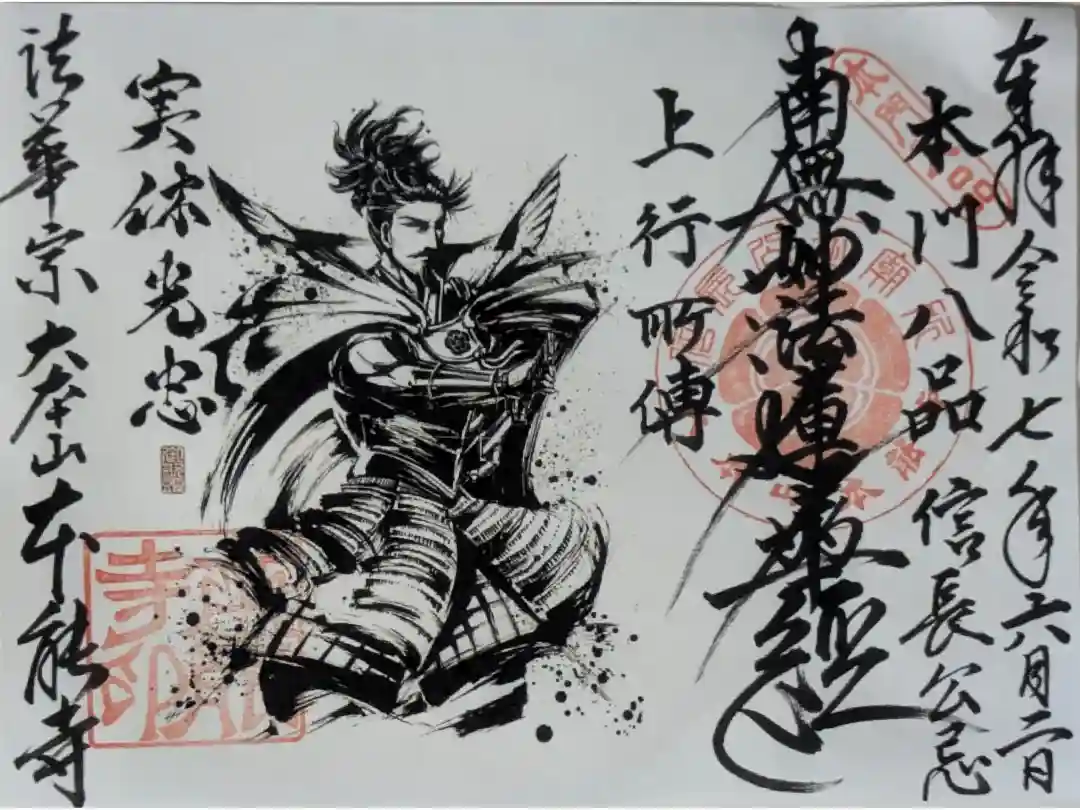 奉拝 令和七年六月二日
本門八品 信長公忌
南無妙法蓮華経
上行所傳
実休光忠
法華宗 大本山 本能寺